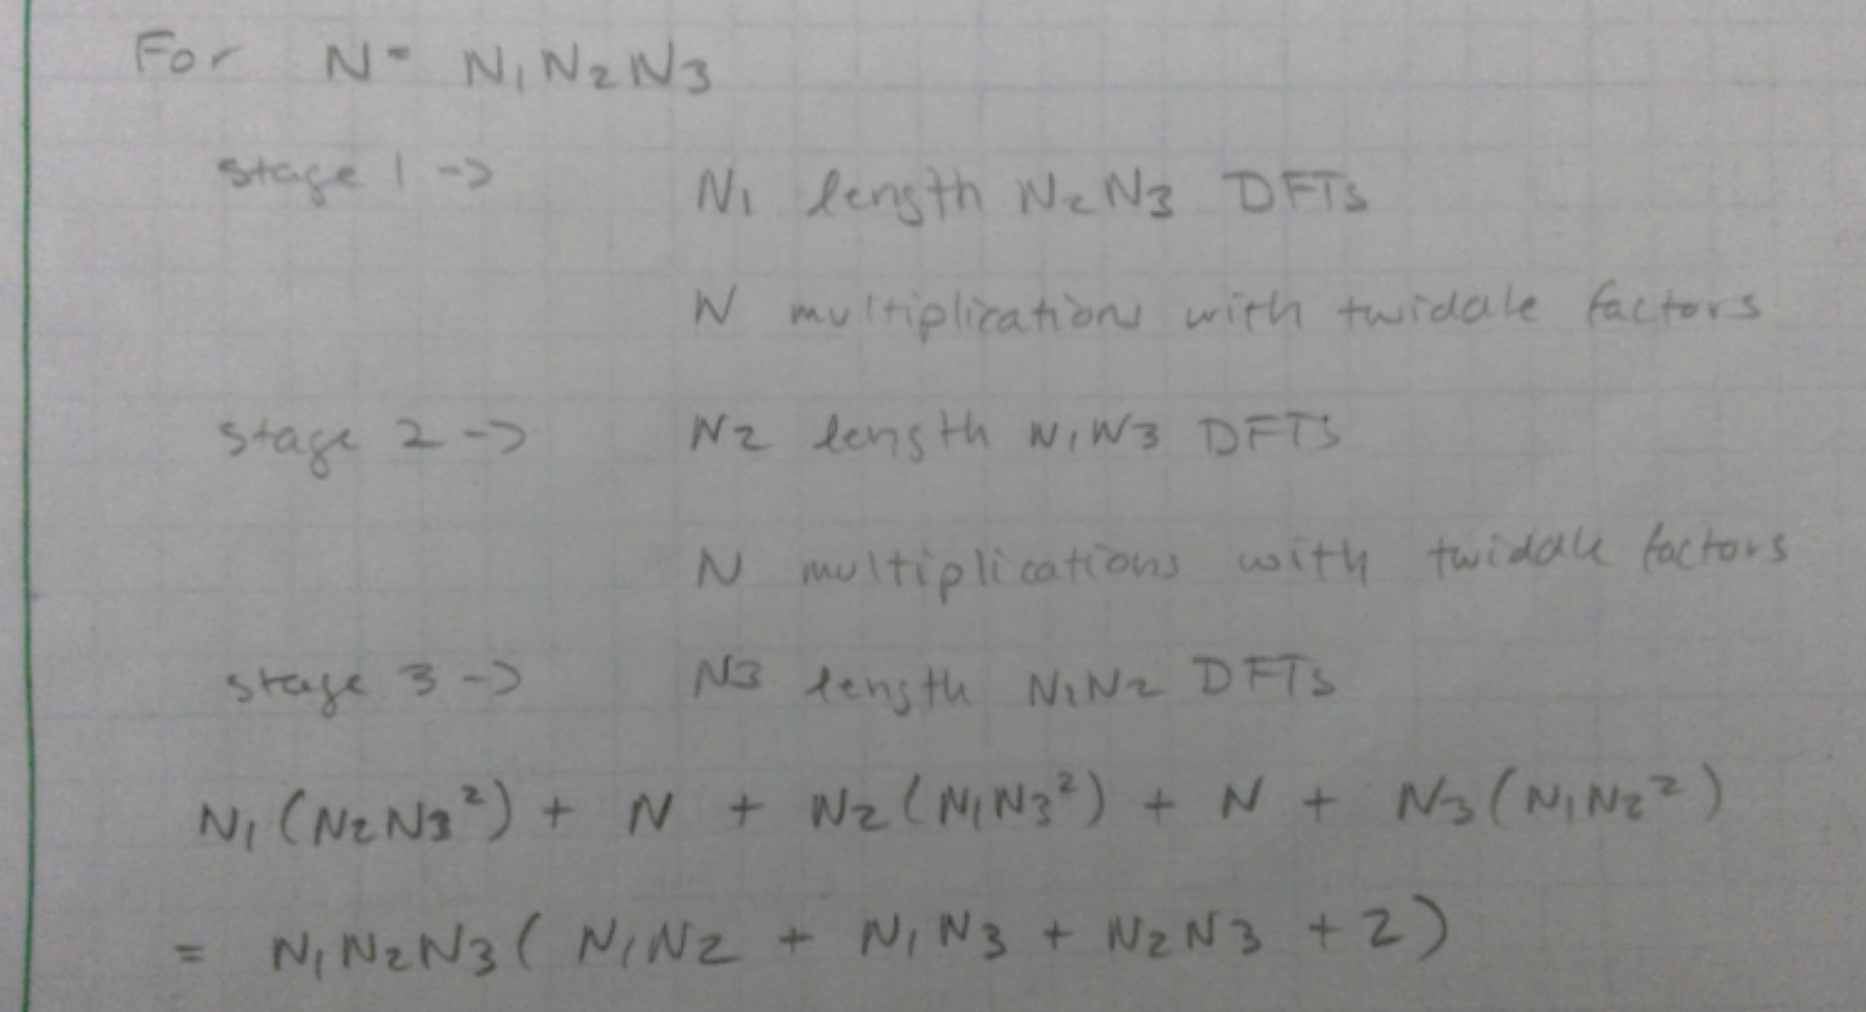 For N = N1N2N3
stage 1 -> N1 length N2N3 DFTs
N multiplications with twiddle factors
stage 2 -> N2 length N1N3 DFTs
N multiplications with twiddle factors
stage 3 -> N3 length N1N2 DFTs
N1(N2N3²) + N + N2(N1N3²) + N + N3(N1N2²)
= N1N2N3(N1N2 + N1N3 + N2N3 + 2)